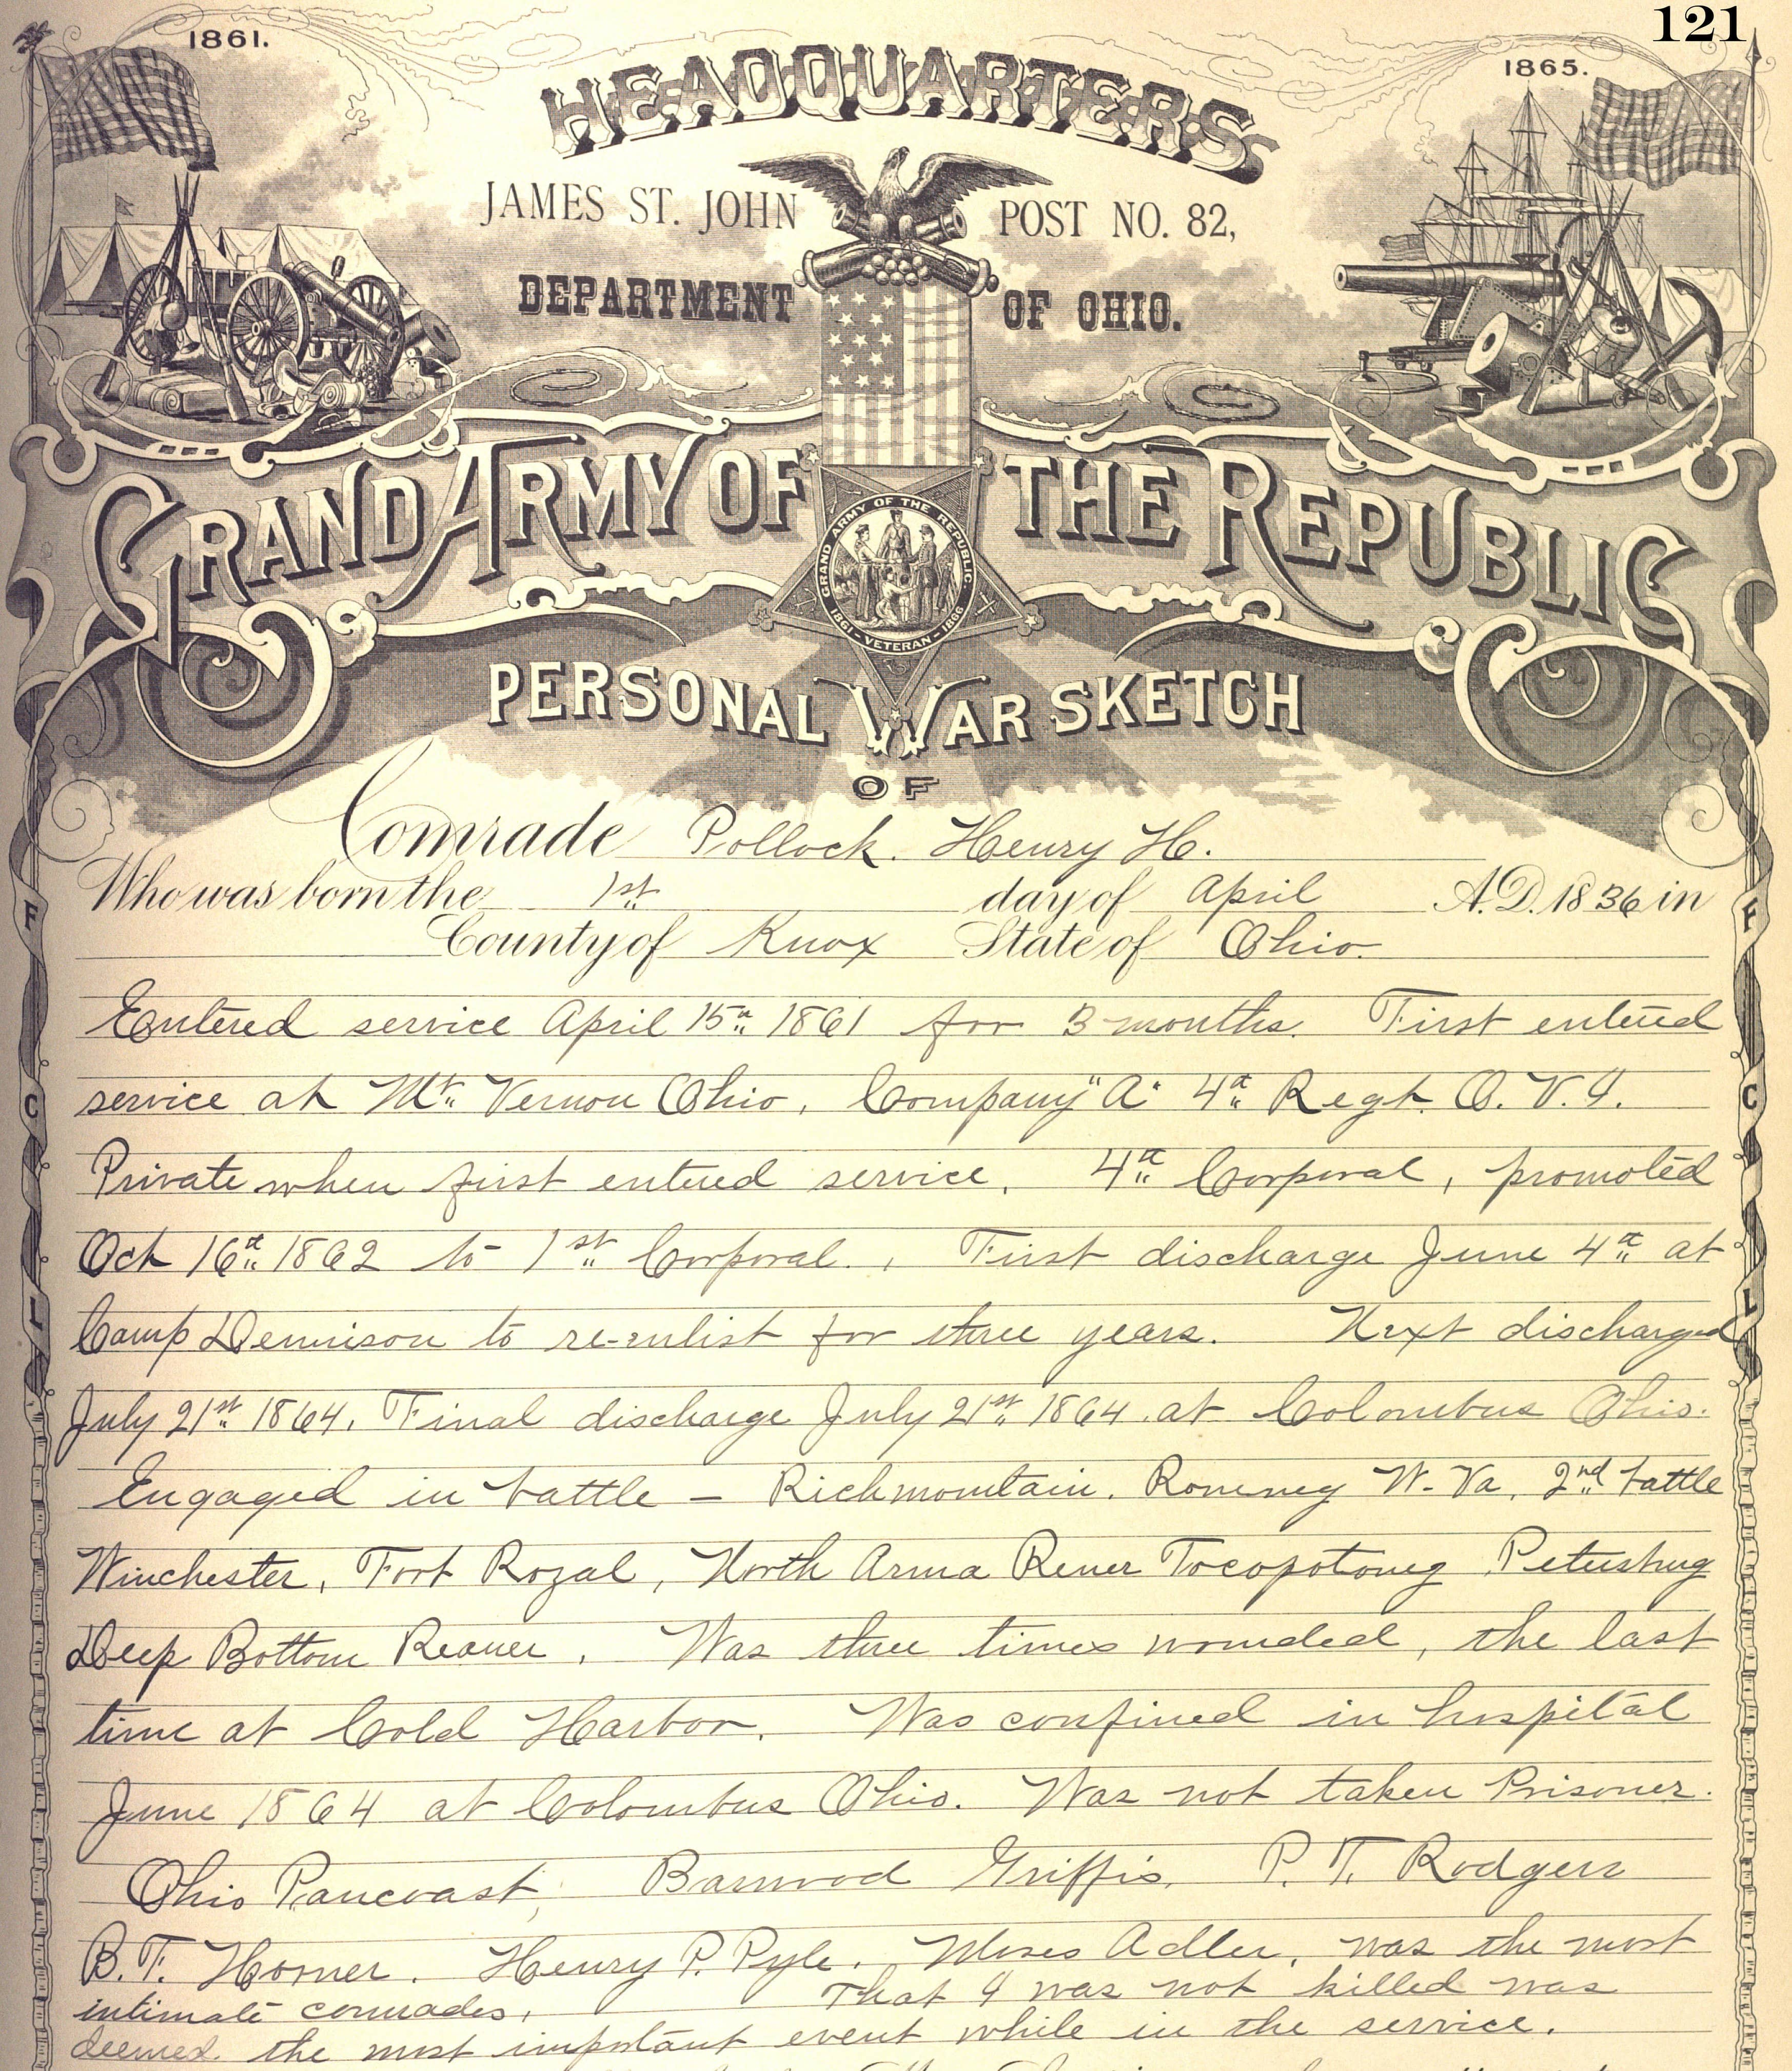 121
1861.
1865.
HEADQUARTERS
JAMES ST. JOHN POST NO. 82,
DEPARTMENT OF OHIO.
GRAND ARMY OF THE REPUBLIC
GRAND ARMY OF THE REPUBLIC
1861 - VETERAN - 1866
PERSONAL WAR SKETCH
OF
Comrade Pollock. Henry H.
Who was born the 1st day of April A.D. 1836 in
County of Knox State of Ohio.
Entered service April 15th 1861 for 3 months. First entered
service at Mt. Vernon Ohio, Company "A" 4th Regt. O. V. I.
Private when first entered service. 4th Corporal, promoted
Oct 16th 1862 to 1st Corporal. First discharge June 4th at
Camp Dennison to re-enlist for three years. Next discharged
July 21st 1864. Final discharge July 21st 1864 at Colombus Ohio.
Engaged in battle – Richmountain. Romney W. Va, 2nd battle
Winchester, Fort Rozal, North Anna River Tocopotomy Petersburg
Deep Bottom Reaver. Was three times wounded, the last
time at Cold Harbor. Was confined in hospital
June 1864 at Colombus Ohio. Was not taken Prisoner.
Ohio Pancoast, Barwood Griffis, P. T. Rodgers
B. T. Horner. Henry P. Pyle. Moses Adler, was the most
intimate comrades, That I was not killed was
deemed the most important event while in the service.
F
C
L
F
C
L